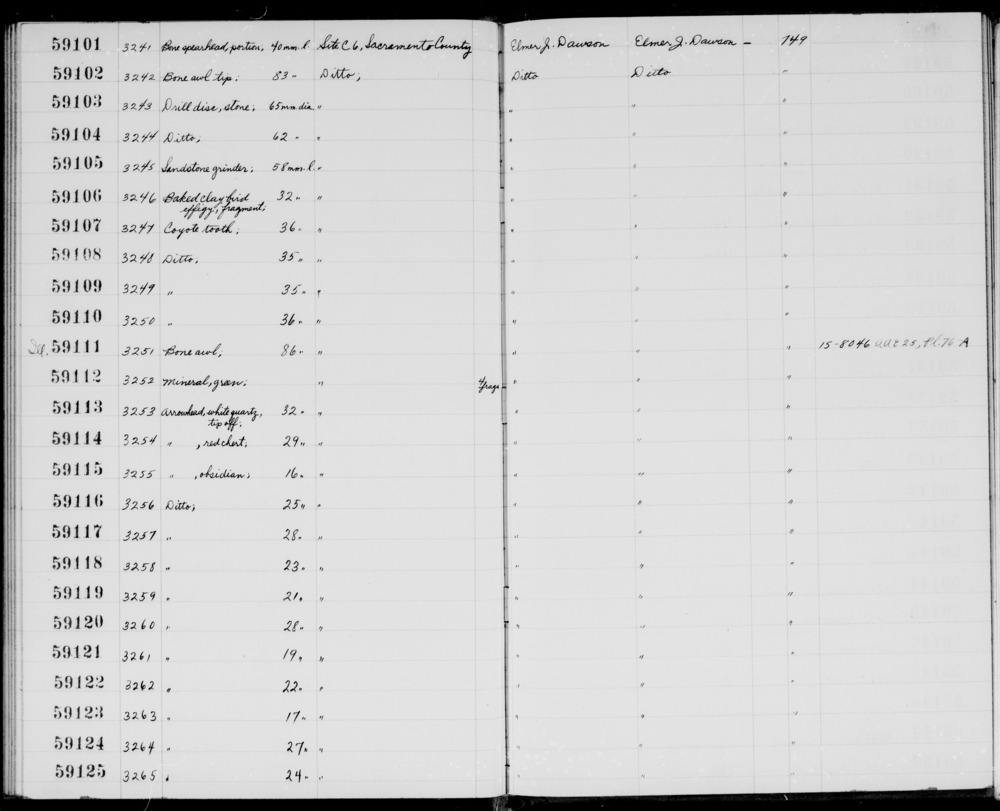 59101 3241 Bone spearhead, portion, 40 mm. l. Site C. 6, Sacramento County Elmer J. Dawson Elmer J. Dawson — 749
59102 3242 Bone awl tip; 83 " Ditto, Ditto Ditto "
59103 3243 Drill disc, stone; 65 mm dia. " " " "
59104 3244 Ditto; 62 " " " " "
59105 3245 Sandstone grinder; 58 mm. l. " " " "
59106 3246 Baked clay bird 32 " " " " "
effigy, fragment;
59107 3247 Coyote tooth; 36 " " " " "
59108 3248 Ditto; 35 " " " " "
59109 3249 " 35 " " " " "
59110 3250 " 36 " " " " "
59111 3251 Bone awl; 86 " " " " " 15-8046 25, Pl. 76 A
59112 3252 Mineral, green; " 4 frags " " "
59113 3253 Arrowhead, white quartz, 32 " " " " "
tip off;
59114 3254 " , red chert; 29 " " " " "
59115 3255 " , obsidian; 16 " " " " "
59116 3256 Ditto; 25 " " " " "
59117 3257 " 28 " " " " "
59118 3258 " 23 " " " " "
59119 3259 " 21 " " " " "
59120 3260 " 28 " " " " "
59121 3261 " 19 " " " " "
59122 3262 " 22 " " " " "
59123 3263 " 17 " " " " "
59124 3264 " 27 " " " " "
59125 3265 " 24 " " " " "